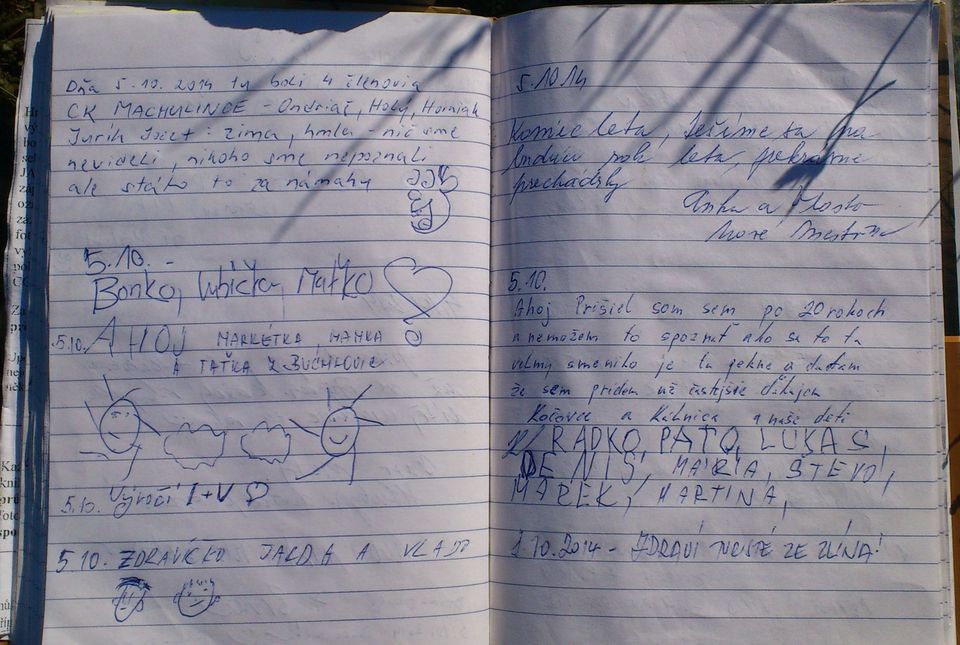 Dňa 5.10. 2014 tu boli 4 členovia
CK MACHULINCE - Ondriaš, Holý, Horniak
Jurík Jozef : zima, hmla - nič sme
nevideli, nikoho sme nepoznali
ale stálo to za námahu JJ
5.10. -
Bonko, Ľubička, Maťko
5.10. AHOJ MARKÉTKA, MAMKA
A TAŤKA Z BUCHLOVIC
5.10. Výročí I+V
5.10. ZDRAVÍČKO JAGDA A VLADO
5.10 14
Koniec leta, tešíme sa na
budúci rok leta, prekrásne
prechádzky
Anka a Vlasto
Nové Mesto
5.10.
Ahoj Prišiel som sem po 20 rokoch
a nemožem to spoznať ako sa to tu
velmy smenilo je tu pekne a dúfam
že sem prídem už častejšie ďakujem
Kočovce a Kálnica a naše deti
RADKO, PAŤO, LUKÁŠ,
DENIS, MÁRIA, ŠTEVO,
MAREK, MARTINA,
10.2014 - ZDRAVÍ TURISTÉ ZE ZLÍNA!